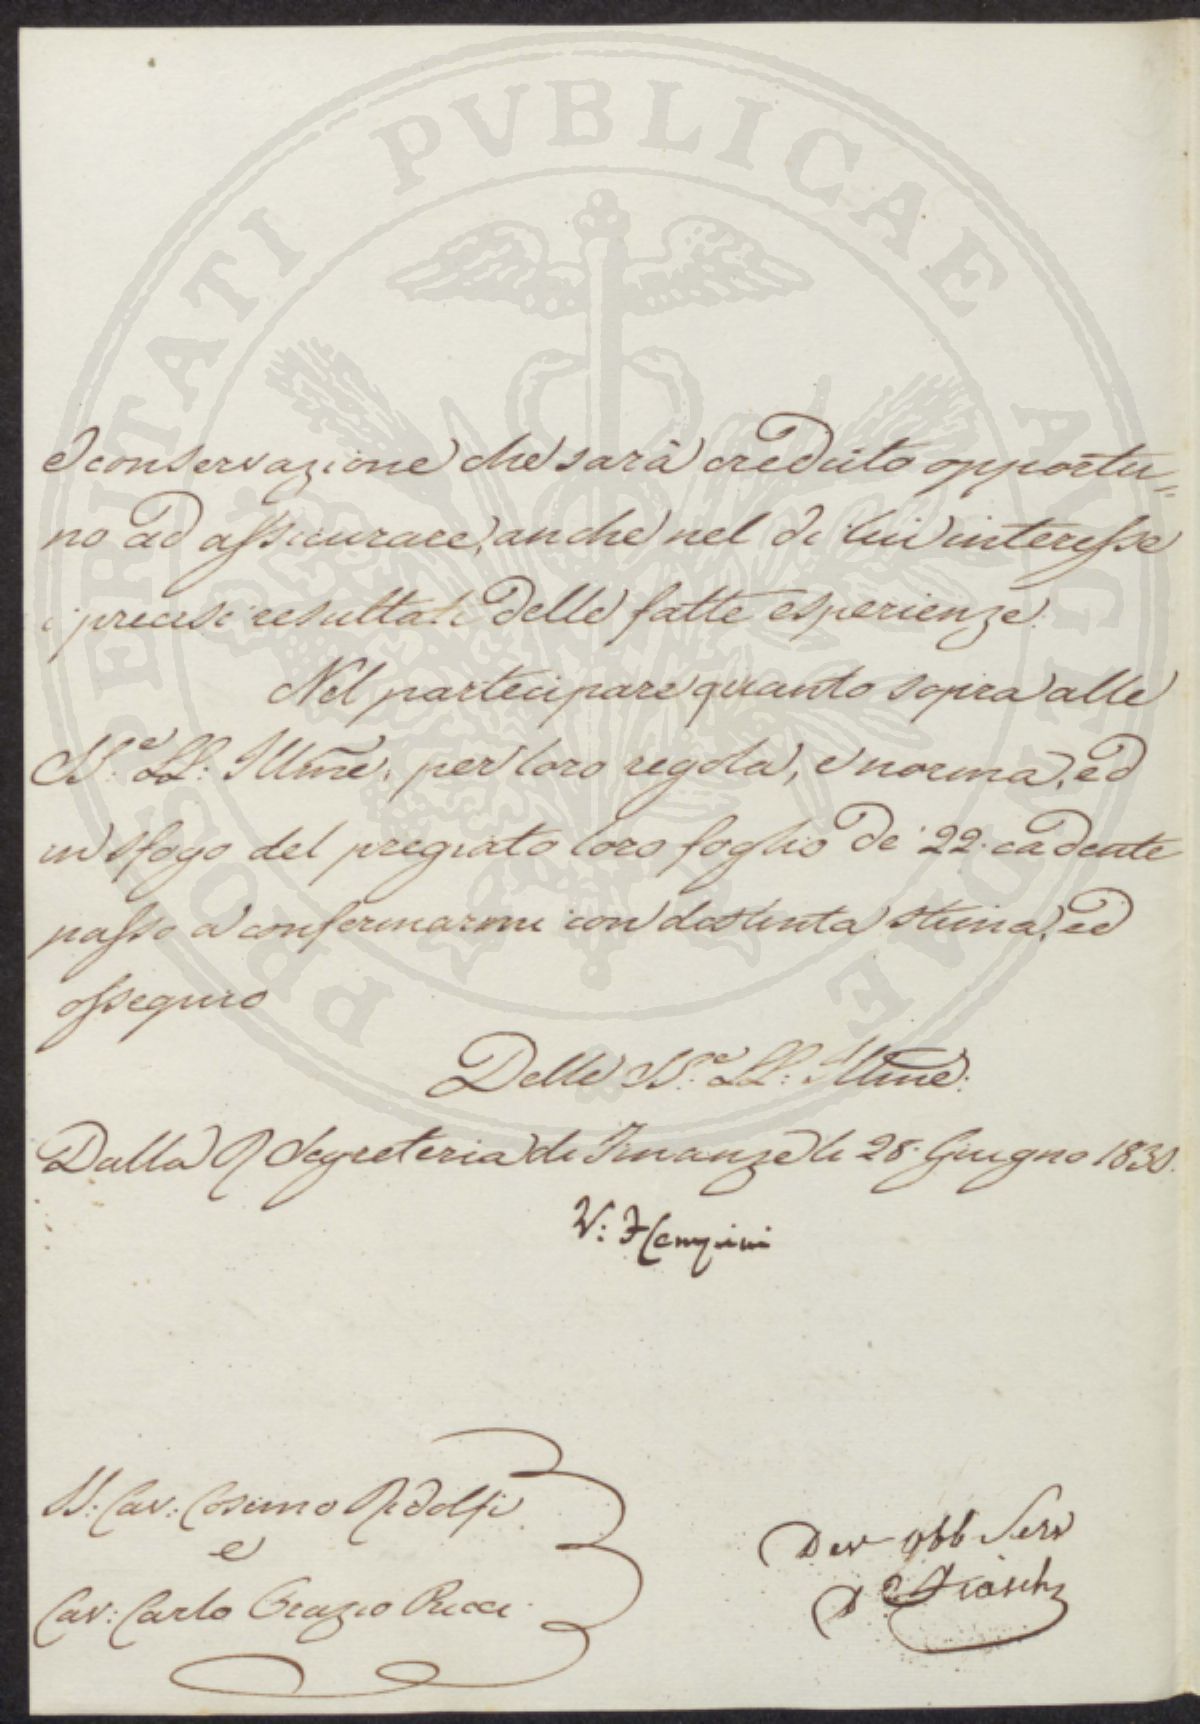 PROSPERITATI PVBLICAE AVGENDAE
e conservazione che sarà creduto opportu=
no ad assicurare, anche nel di lui interesse
i precisi resultati delle fatte esperienze.
Nel partecipare quanto sopra alle
SS.e LL: Illme. per loro regola, e norma, ed
in sfogo del pregiato loro foglio de' 22. cadente
passo a confermarmi con distinta stima, ed
ossequio
Delle SS.e LL: Illme:
Dalla R Segreteria di Finanze li 28. Giugno 1830.
V: F Cempini
SS: Cav: Cosimo Ridolfi
e
Cav: Carlo Orazio Ricci
Dev obb Serv